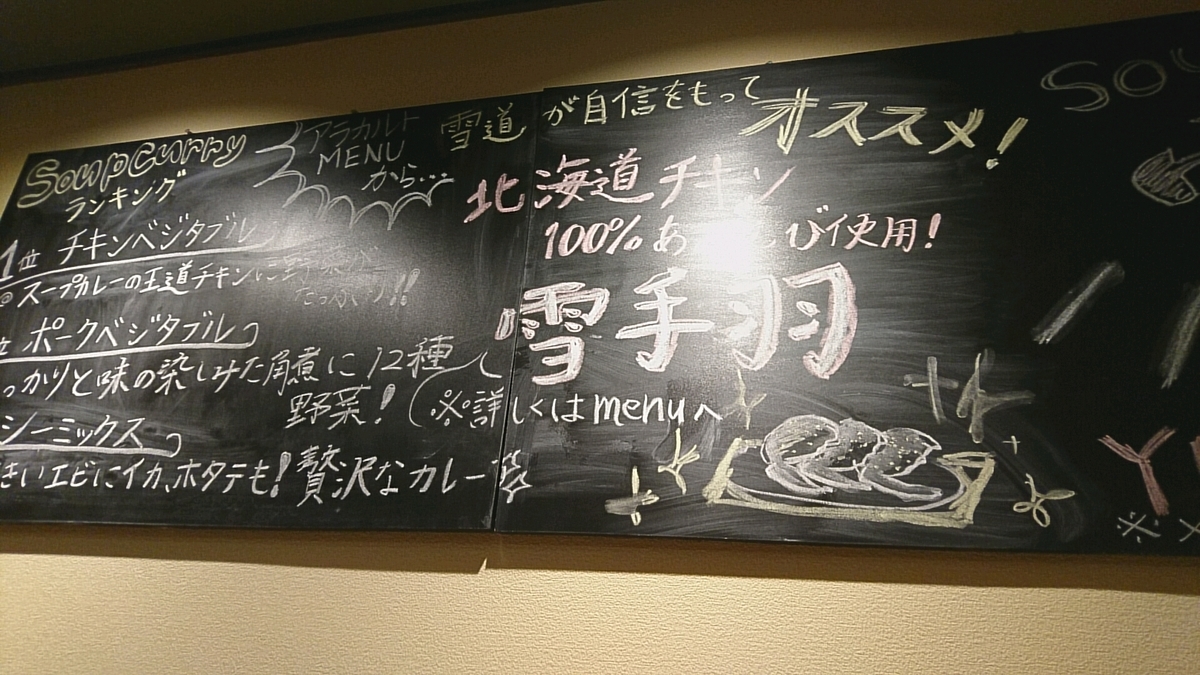 Soup curry
ランキング
1位 チキンベジタブル
スープカレーの王道チキンに野菜が
たっぷり!!
位 ポークベジタブル
っかりと味の染しみた角煮に12種
野菜!(※詳しくはmenuへ
シーミックス
きいエビにイカ、ホタテも!贅沢なカレー
アラカルト
MENU
から…
雪道が自信をもって
オススメ!
北海道チキン
100% あ び使用!
雪手羽
SOU
Y
※